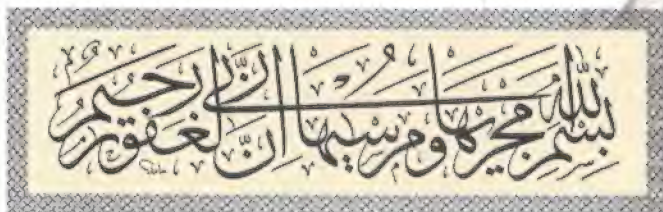 بِسْمِ اللّٰهِ مَجْرٖىهَا وَمُرْسٰيهَا اِنَّ رَبّٖى لَغَفُورٌ رَحٖيمٌ